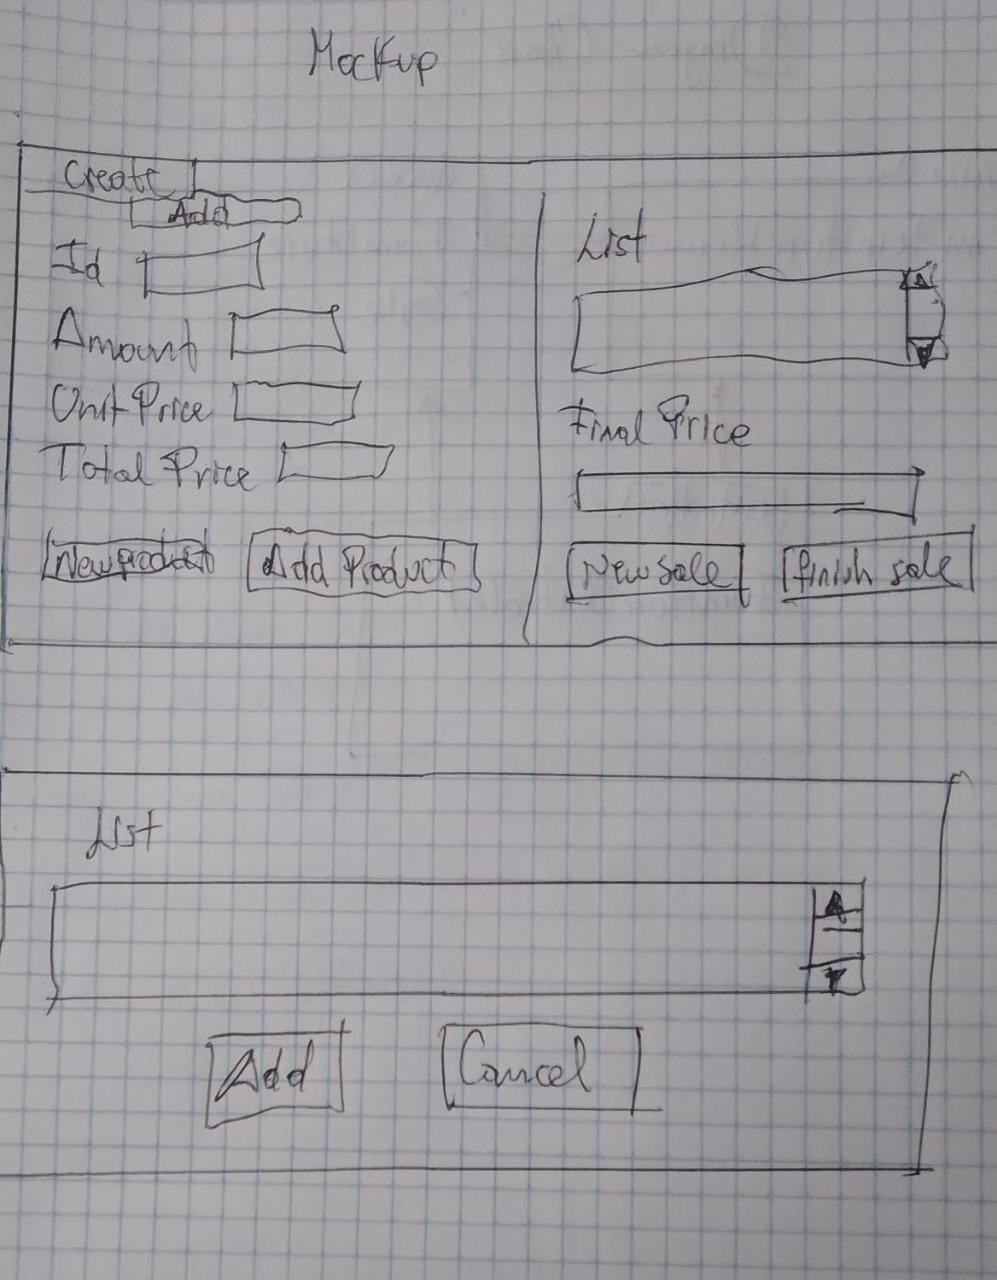 Mockup
Create
Add
Id
Amount
Unit Price
Total Price
New product
Add Product
List
Final Price
New sale
finish sale
List
Add
Cancel